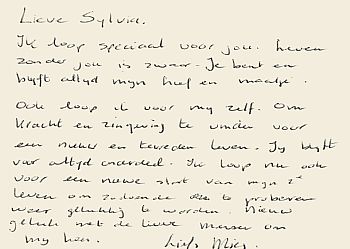 Lieve Sylvia.
Ik loop speciaal voor jou. Leven
zonder jou is zwaar. Je bent en
blijft altijd mijn lief en maatje.
Ook loop ik voor mij zelf. Om
kracht en zingeving te vinden voor
een nieuw en tevreden leven. Jij blijft
voor altijd onderdeel. Ik loop nu ook
voor een nieuwe start van mijn 2e
leven om zodoende te proberen
weer gelukkig te worden. Nieuw
geluk met de lieve mensen om
mij heen. Liefs